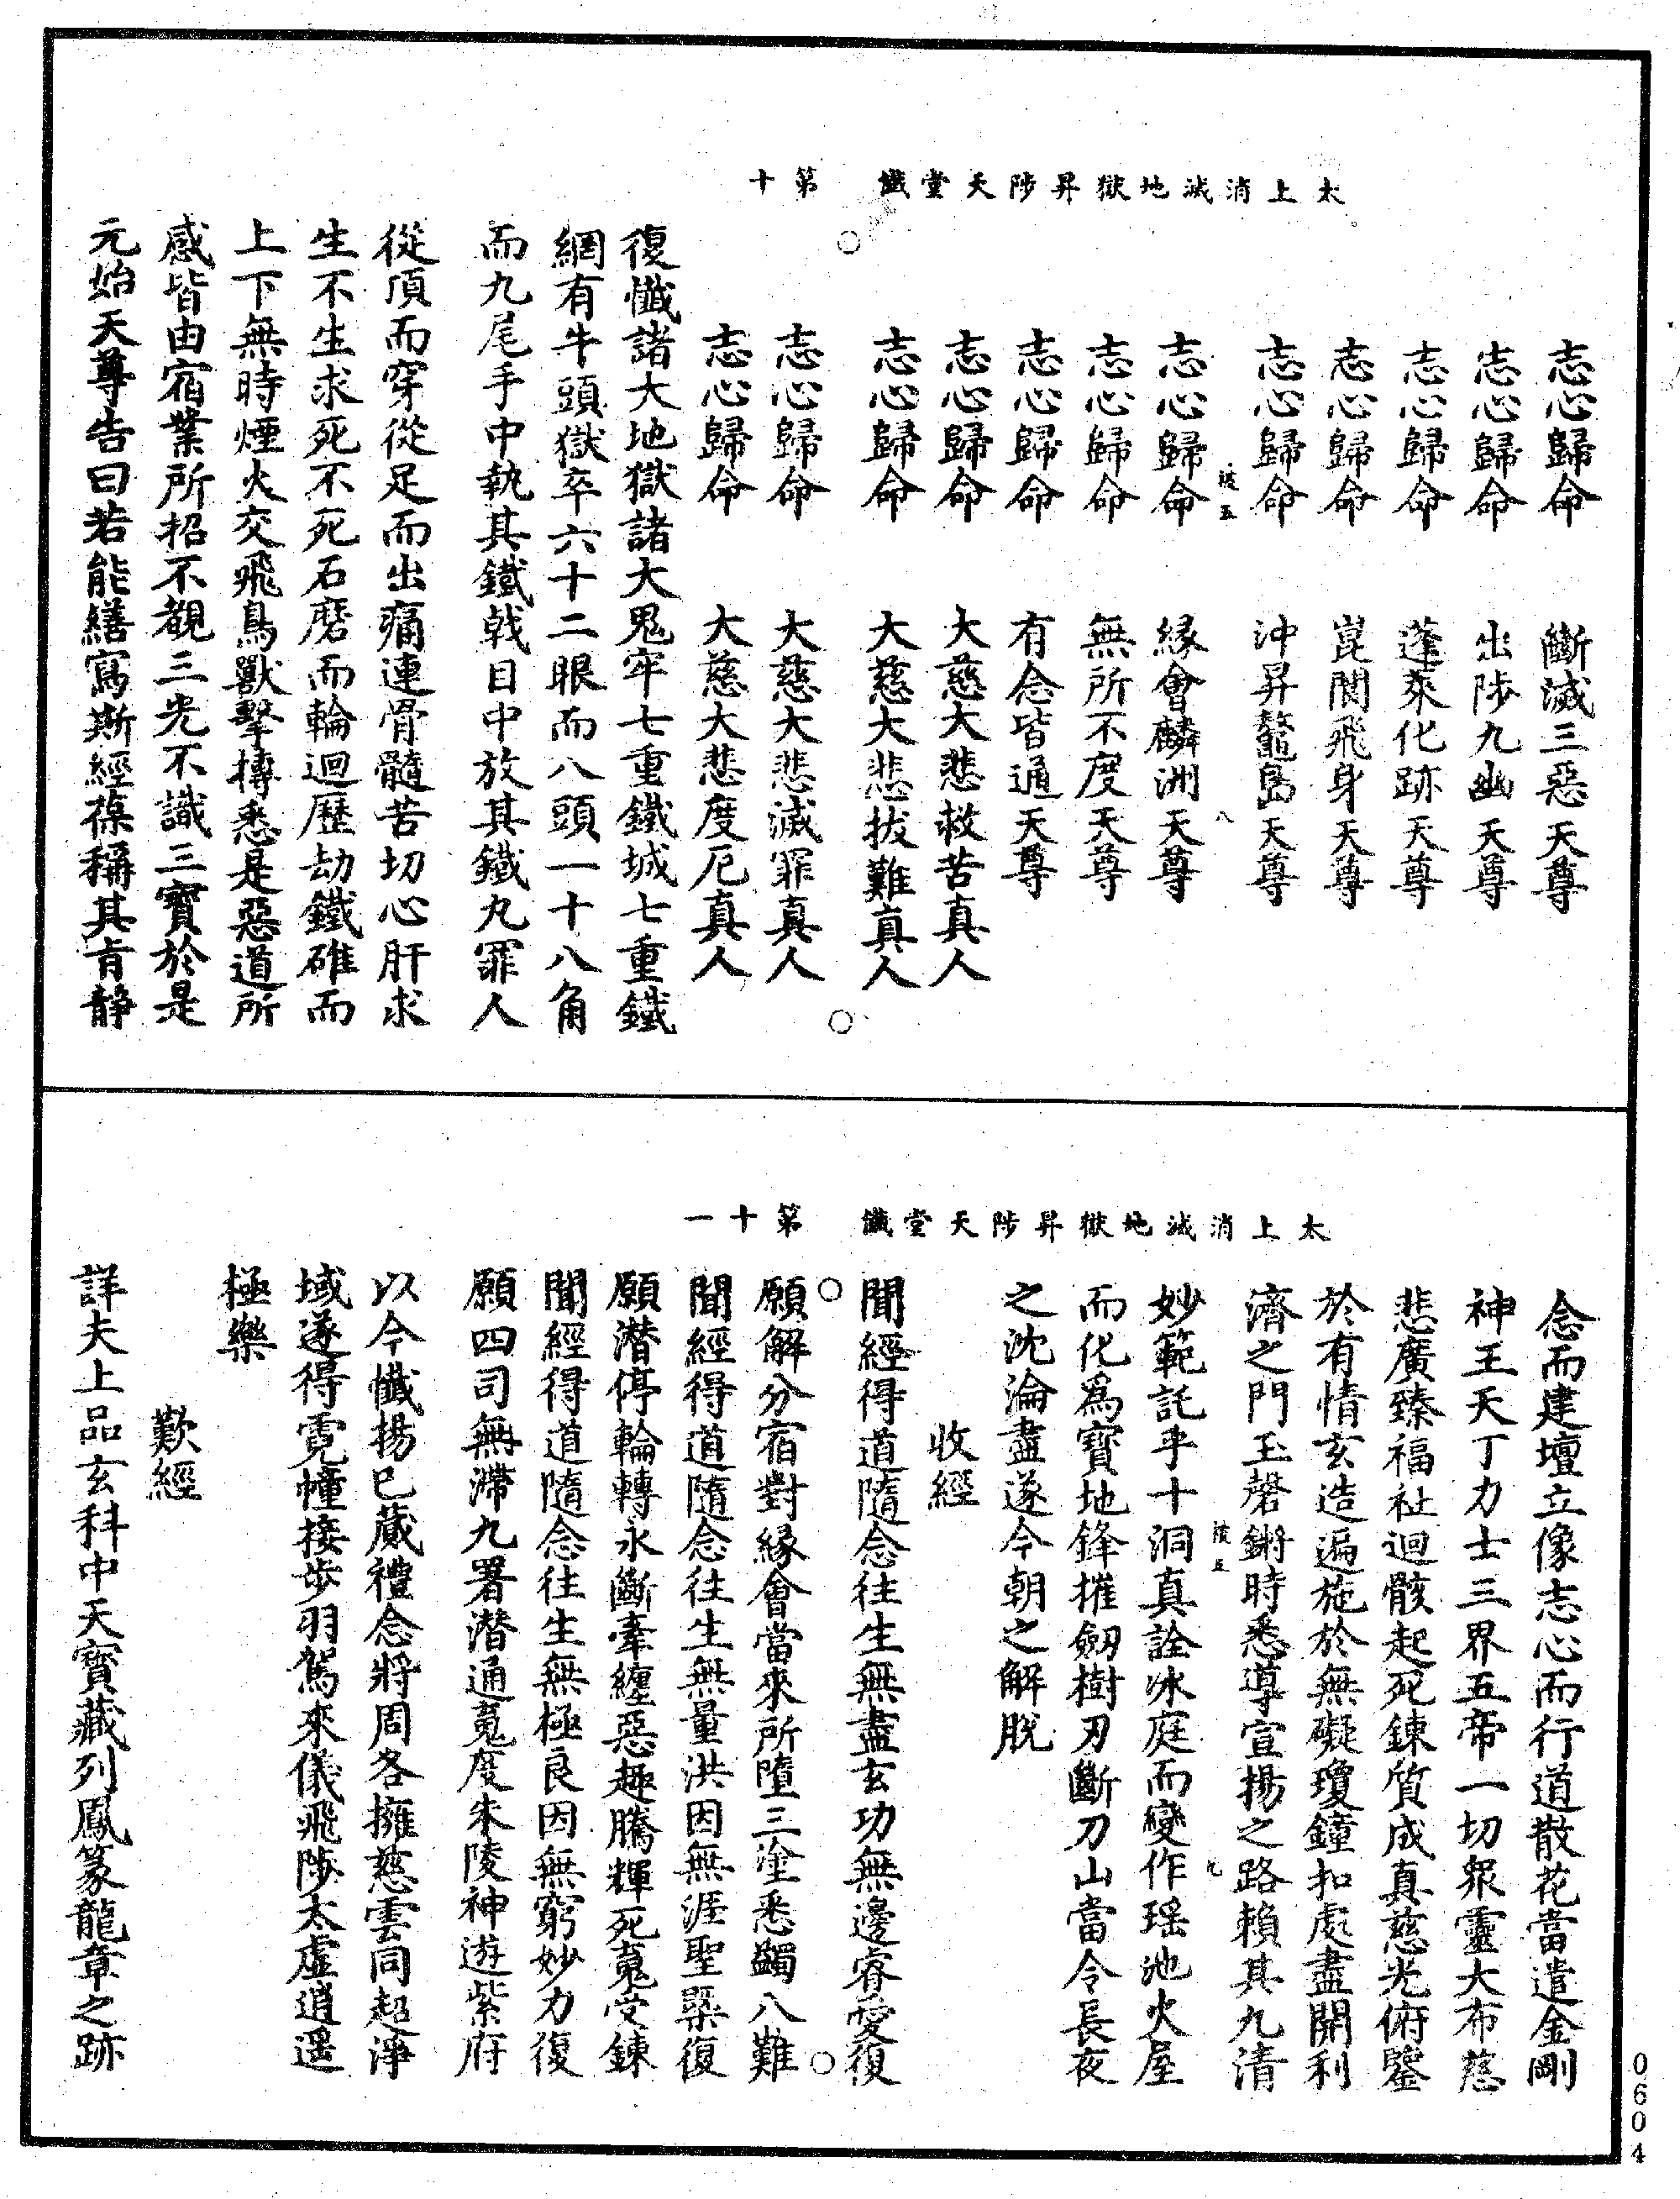 太上消滅地獄昇陟天堂懺　第十
志心歸命　斷滅三惡天尊
志心歸命　出陟九幽天尊
志心歸命　蓬萊化跡天尊
志心歸命　崑閬飛身天尊
志心歸命　沖昇鼇島天尊
八
志心歸命　緣會麟洲天尊
志心歸命　無所不度天尊
志心歸命　有念皆通天尊
志心歸命　大慈大悲救苦真人
志心歸命　大慈大悲拔難真人
志心歸命　大慈大悲滅罪真人
志心歸命　大慈大悲度厄真人
復懺諸大地獄諸大鬼牢七重鐵城七重鐵
網有牛頭獄卒六十二眼而八頭一十八角
而九尾手中執其鐵戟目中放其鐵丸罪人
從頂而穿從足而出痛連骨髓苦切心肝求
生不生求死不死石磨而輪迴歷劫鐵碓而
上下無時煙火交飛鳥獸擊摶悉是惡道所
感皆由宿業所招不覩三光不識三寶於是
元始天尊告曰若能繕寫斯經葆稱其肯靜
太上消滅地獄昇陟天堂懺　第十一
念而建壇立像志心而行道散花當遣金剛
神王天丁力士三界五帝一切眾靈大布慈
悲廣臻福祉迴骸起死鍊質成真慈光俯鑒
於有情玄造遍施於無礙瓊鐘扣處盡開利
濟之門玉磬鏘時悉導宣揚之路賴其九清
九
妙範託乎十洞真詮冰庭而變作瑶池火屋
而化為寶地鋒摧劔樹刃斷刀山當令長夜
之沈淪盡遂今朝之解脫
收經
聞經得道隨念往生無盡玄功無邊睿愛復
願解分宿對緣會當來所墮三塗悉蠲八難
聞經得道隨念往生無量洪因無涯聖槩復
願潛停輪轉永斷牽纏惡趣騰輝死魂受鍊
聞經得道隨念往生無極良因無窮妙力復
願四司無滯九署潛通魂度朱陵神遊紫府
以今懺揚已蕆禮念將周各擁慈雲同超淨
域遂得霓幢接步羽駕來儀飛陟太虛逍遥
極樂
歎經
詳夫上品玄科中天寶藏列鳳篆龍章之跡
0604